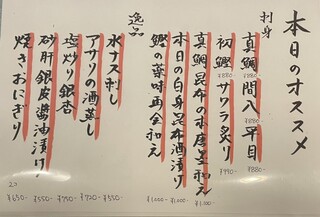 本日のオススメ
刺身
真鯛 間八 平目
¥880- ¥880- ¥880-
初鰹 サワラ炙り
¥880- ¥990-
真鯛昆布の水唐墨和え
¥1,100-
本日の白身昆布酒漬け
¥1,000-
鰹の薬味再仝和え
¥1,000-
逸品
水ナス刺し
¥550-
アサリの酒蒸し
¥700-
塩炒り銀杏
¥750-
砂肝銀皮醤油漬け
¥550-
焼きおにぎり
2コ ¥650-